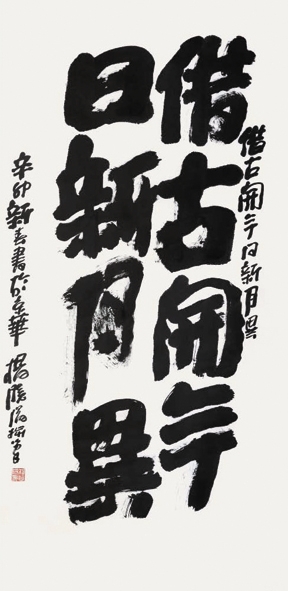 借古開今日新月異
借古開今
日新月異
辛卯新春書於京華 楊